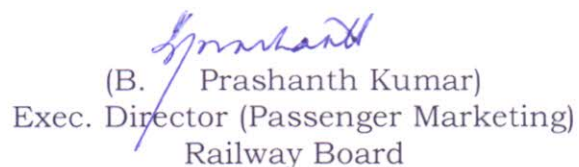 Prashanth
(B. Prashanth Kumar)
Exec. Director (Passenger Marketing)
Railway Board